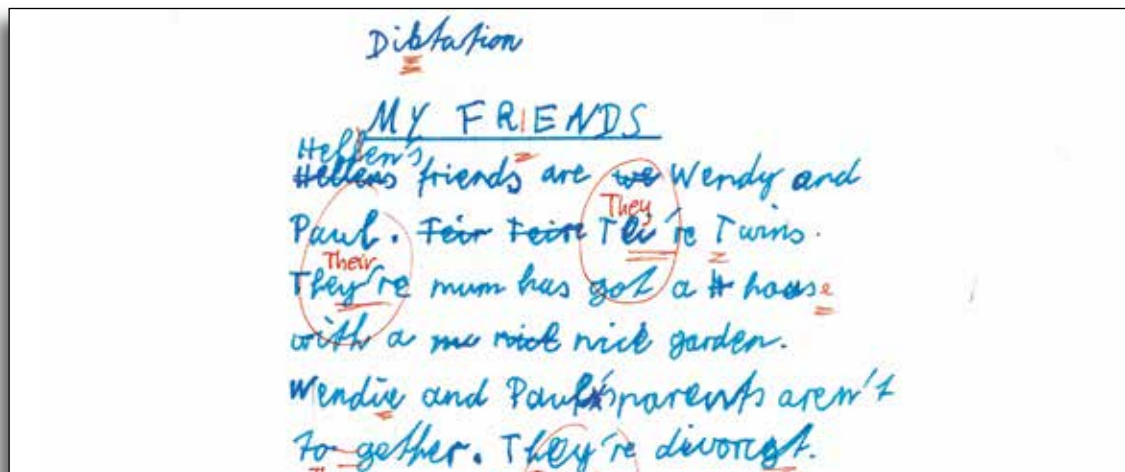 Diktation
MY FRIENDS
Hellen's
Hellens friends are we Wendy and
They
Paul. Teir Teire Thei're Twins.
Their
They're mum has got a H house
with a nice garden.
Wendie and Paul's parents aren't
to gether. They're divorcet.